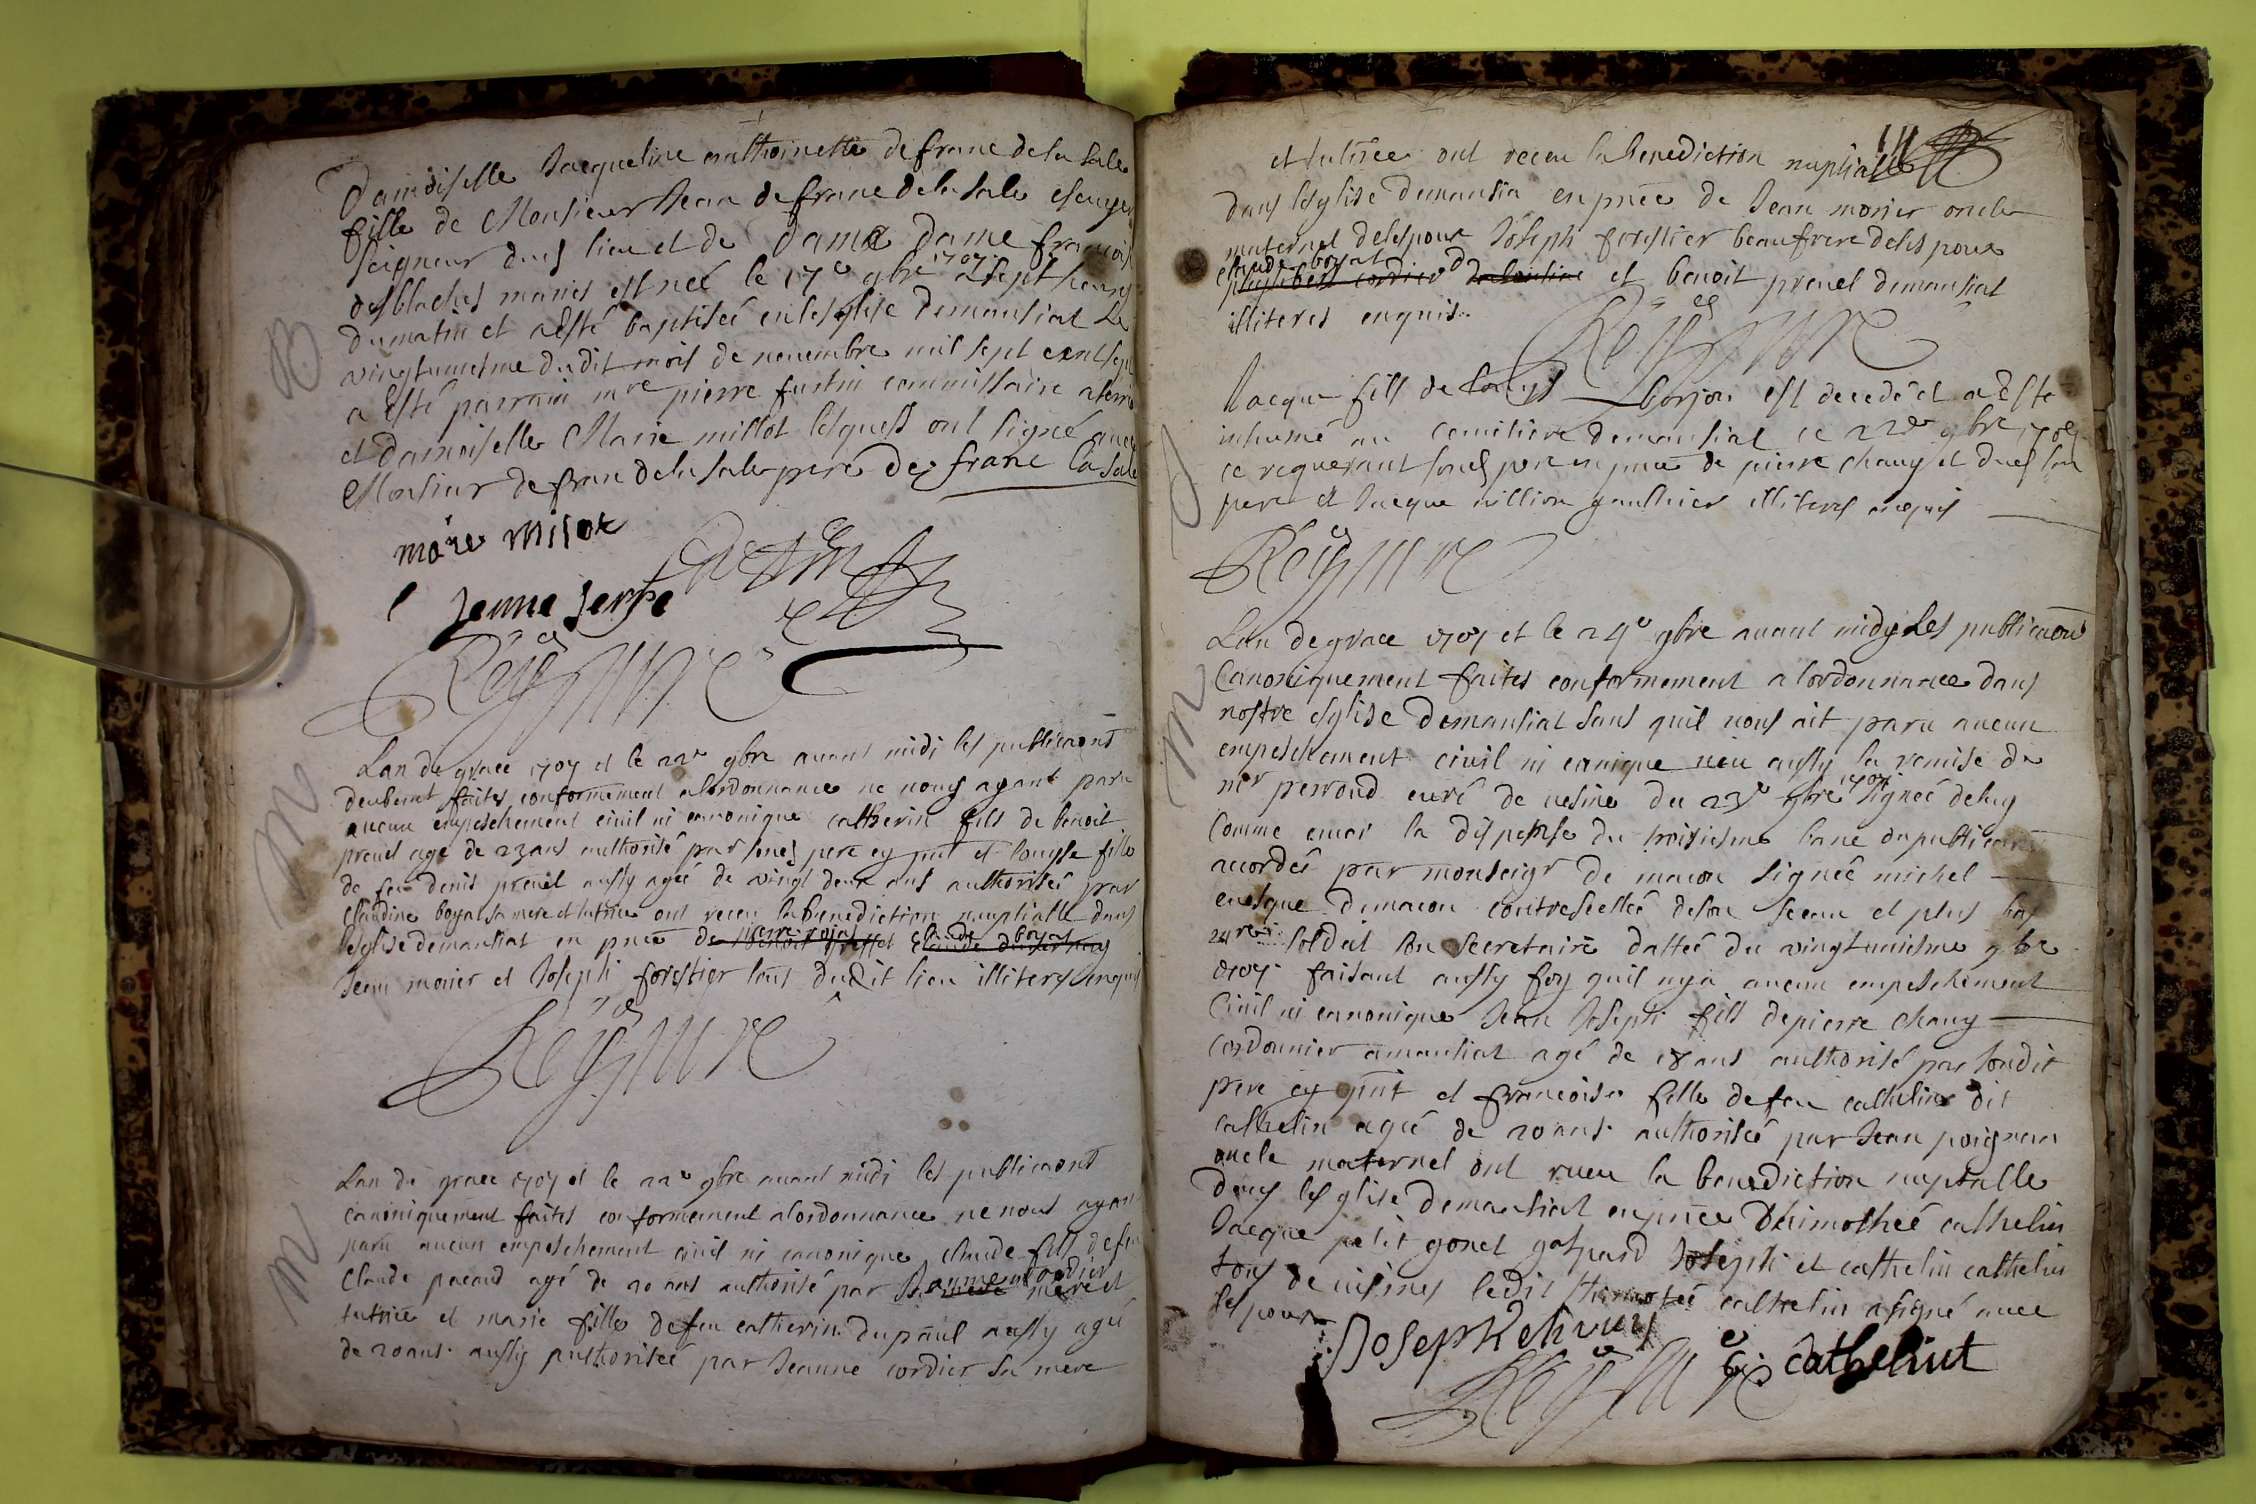 Damoiselle Jacqueline anthoinette de franc de la sale
fille de Monsieur Jean de franc de la sale escuyer
seigneur duds lieu et de dame dame françois
desblaches maries est neé le 17e 9bre 1707 a sept heures
du matin et a Esté baptiseé en lesglise demantiat le
vingtunieme dudit mois de novembre mil sept cent sept
a Esté parrain mre pierre fustin commissaire a terrie
et damoiselle Marie millot lesquels ont signé avec
Monsieur de franc de la sale pere de franc la sale
marie misot
Jeanne serpe
Reymure
Lan de grace 1707 et le 22e 9bre avant midi les publicaons
deubemt faites conformement a lordonnance ne nous ayant paru
aucun empeschement civil ni canonique catherin fils de benoit
prevel agé de 23 ans authorisé par sond pere cy pnt et Louyse fille
de feu denis prevel aussy ageé de vingt deux ans authoriseé par
Claudine boyat sa mere et tutrice ont receu la benediction nuptialle dans
lesglise demantiat en pnce de claude boyat
Jean monier et Joseph forestier tous dudit lieu illiteres enquis
Reymure
Lan de grace 1707 et le 22e 9bre avant midi les publicaons
canoniquement faites conformement a lordonnance ne nous ayant
paru aucun empeschement civil ni canonique claude fils defeu
Claude pacaud agé de 20 ans authorisé par cordier mere et
tutrice et marie fille defeu catherin dupanil aussy ageé
de 20 ans aussy authoriseé par Jeanne cordier sa mere
et tutrice ont receu la benediction nuptialle
dans lesglise demantia en pnce de Jean monier oncle
maternel delespoux Joseph forestier beaufrere delespoux
claude boyat et benoit prevel demantiat
illiteres enquis
Reymure
Jacque fils de Louys borjon est decedé et a Esté
inhumé au cemitiere demantiat ce 22e 9bre 1707
ce requerant sond pere en pnce de pierre chavy et dud son
pere et Jacque million gaulthier illiteres enquis
Reymure
Lan de grace 1707 et le 24e 9bre avant midy les publicaons
Canoniquement faites conformement a lordonnance dans
nostre esglise demantiat sans quil nous ait paru aucun
empeschement civil ni canique veu aussy la remise de
mer perroud curé de vesine du 23e 9bre 1707 signeé deluy
Comme aussi la dispense du troisiesme banc du publicaon
accordeé par monseigr de macon signeé michel
evesque demacon contresceelleé deson sceau et plus bas
soldat son secretaire datteé du vingtuniesme 9bre
1707 faisant aussy foy quil ny a aucun empeschement
Civil ni canonique Jean Joseph fils depierre chavy
cordonnier a mantiat agé de 18 ans authorisé par sondit
pere cy pnt et françoise fille defeu cathelin dit
cathelin ageé de 20 ans authoriseé par Jean poignan
oncle maternel ont receu la benediction nuptialle
dans lesglise demantiat en pnce Thimotheé cathelin
Jacque petit gonet gaspard Joseph et cathelin cathelin
tous de vesines ledit thimoteé cathelin a signé avec
lespoux
Joseph chavy
cathelint
Reymure